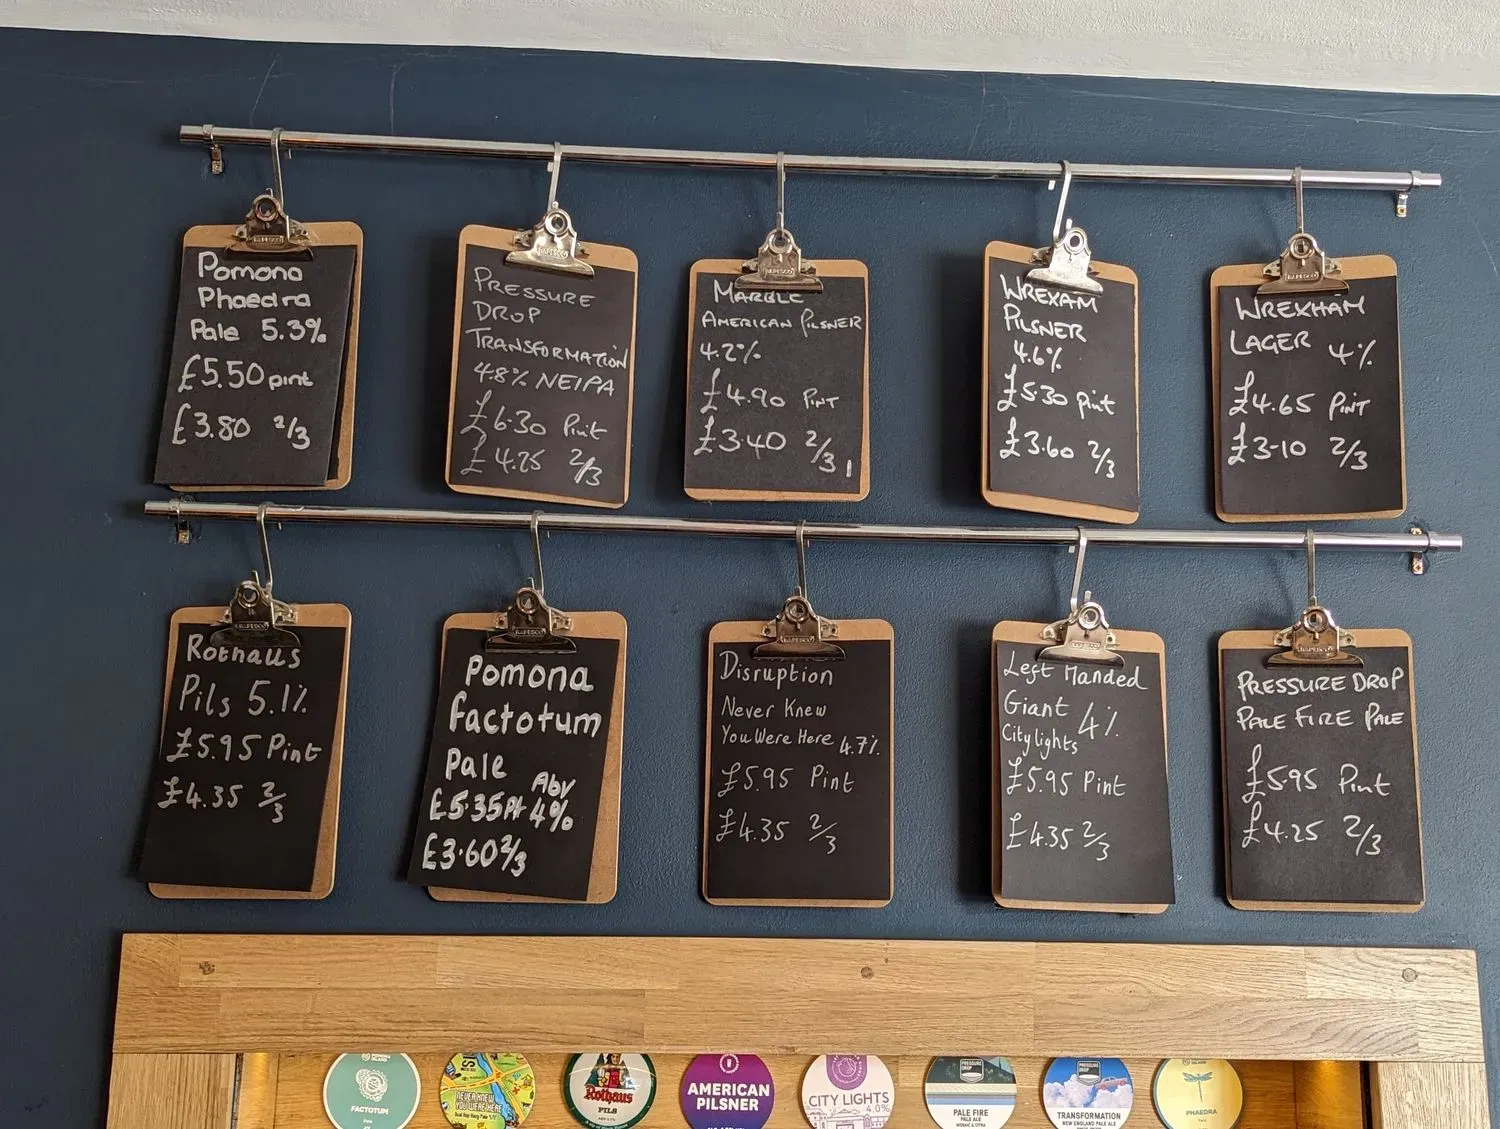 Pomona
Phaedra
Pale 5.3%
£5.50 pint
£3.80 2/3
PRESSURE
DROP
TRANSFORMATION
4.8% NEIPA
£6.30 Pint
£4.25 2/3
MARBLE
AMERICAN PILSNER
4.2%
£4.90 PINT
£3.40 2/3
WREXAM
PILSNER
4.6%
£5.30 pint
£3.60 2/3
WREXHAM
LAGER 4%
£4.65 PINT
£3.10 2/3
Rothaus
Pils 5.1%
£5.95 Pint
£4.35 2/3
Pomona
factotum
Pale
Abv
£5.35pt 4%
£3.60 2/3
Disruption
Never Knew
You Were Here 4.7%
£5.95 Pint
£4.35 2/3
Left Handed
Giant 4%
City lights
£5.95 Pint
£4.35 2/3
PRESSURE DROP
PALE FIRE PALE
£5.95 Pint
£4.25 2/3
FACTOTUM
Pale
NEVER KNEW
YOU WERE HERE
Rothaus
PILS
AMERICAN
PILSNER
CITY LIGHTS
4.0%
PRESSURE
DROP
PALE FIRE
PALE ALE
MOSAIC & CITRA
PRESSURE
DROP
TRANSFORMATION
NEW ENGLAND PALE ALE
PHAEDRA